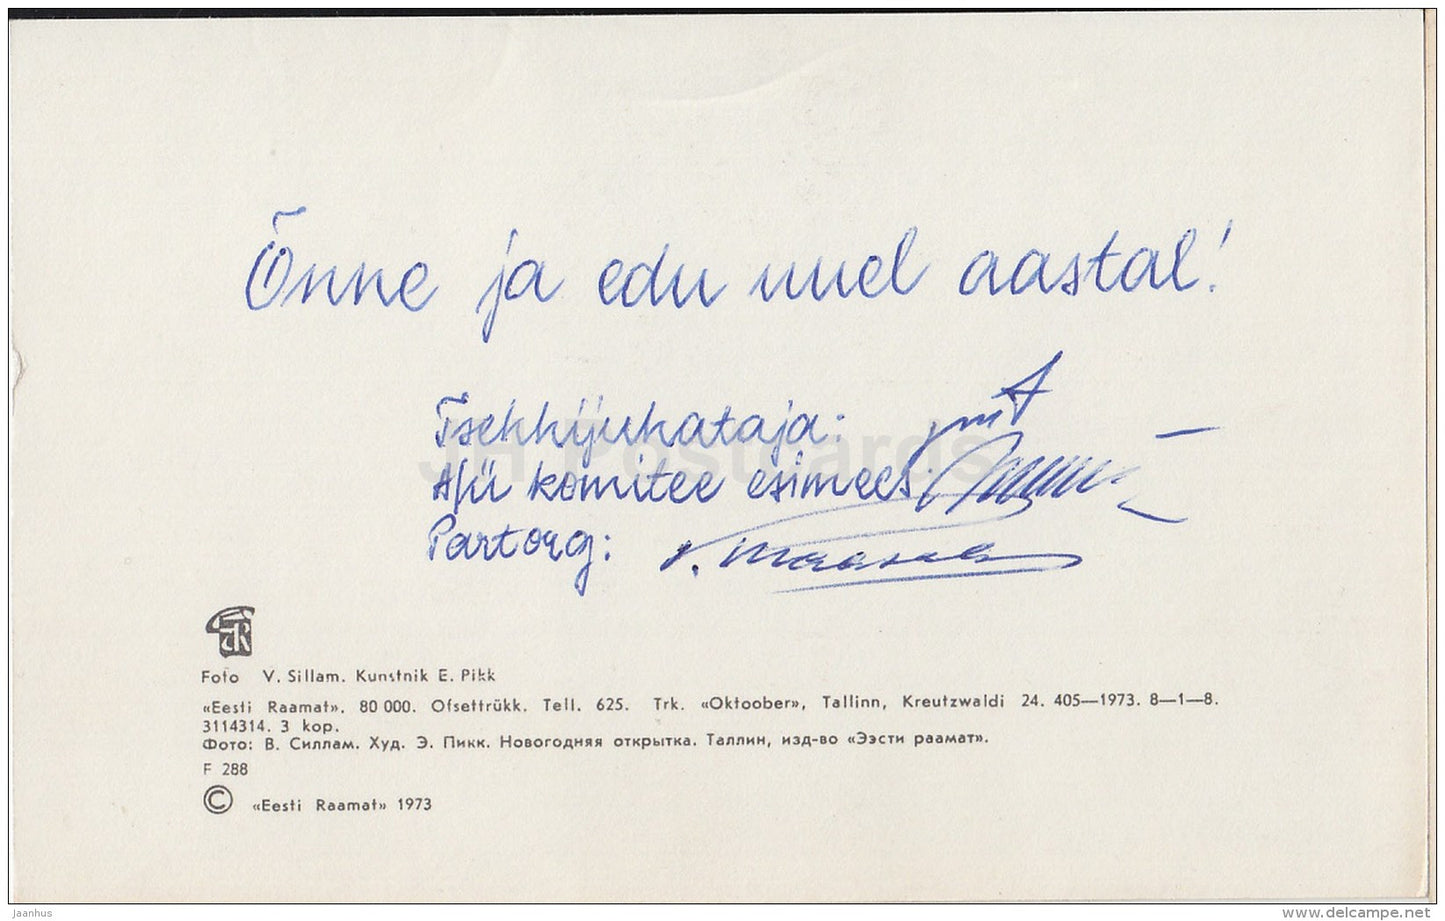 Õnne ja edu uuel aastal!
Tsehhijuhataja:
A/ü komitee esimees:
Partorg:
JH Postcards
Foto V. Sillam. Kunstnik E. Pikk
«Eesti Raamat». 80 000. Ofsettrükk. Tell. 625. Trk. «Oktoober», Tallinn, Kreutzwaldi 24. 405—1973. 8—1—8.
3114314. 3 kop.
Фото: В. Силлам. Худ. Э. Пикк. Новогодняя открытка. Таллин, изд-во «Ээсти раамат».
F 288
© «Eesti Raamat» 1973
jaanhus
www.delcampe.net